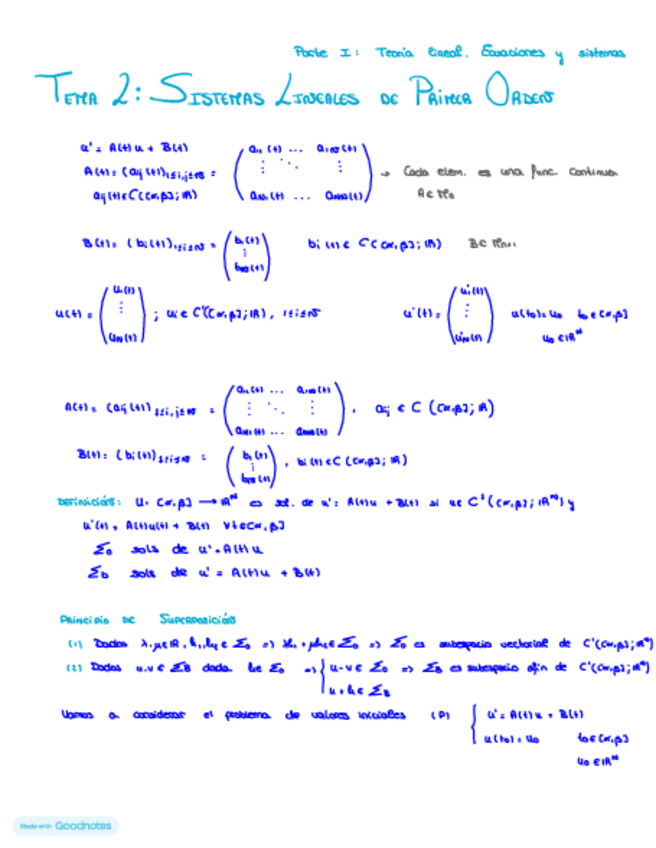 Parte I: Teoría lineal. Ecuaciones y sistemas
TEMA 2: SISTEMAS LINEALES DE PRIMER ORDEN
u' = A(t)u + B(t)
A(t) = (aij(t))1≤i,j≤N = ( a11(t) ... a1N(t) ⋮ ⋱ ⋮ aN1(t) ... aNN(t) ) → Cada elem. es una func. continua
aij(t) ∈ C([α,β]; IR)
B(t) = (bi(t))1≤i≤N = ( b1(t) ⋮ bN(t) ) bi(t) ∈ C([α,β]; IR)
u(t) = ( u1(t) ⋮ uN(t) ) ; ui ∈ C'([α,β]; IR), 1≤i≤N u'(t) = ( u1'(t) ⋮ uN'(t) ) u(t0) = u0 t0 ∈ [α,β]
u0 ∈ IR^N
A(t) = (aij(t))1≤i,j≤N = ( a11(t) ... a1N(t) ⋮ ⋱ ⋮ aN1(t) ... aNN(t) ), aij ∈ C([α,β]; IR)
B(t) = (bi(t))1≤i≤N = ( b1(t) ⋮ bN(t) ), bi(t) ∈ C([α,β]; IR)
DEFINICIÓN: u: [α,β] → IR^N es sol. de u' = A(t)u + B(t) si u ∈ C^1([α,β]; IR^N) y
u'(t) = A(t)u(t) + B(t) ∀t ∈ [α,β]
Σ0 sols de u' = A(t)u
Σb sols de u' = A(t)u + B(t)
PRINCIPIO DE SUPERPOSICIÓN
(1) Dados λ,μ ∈ IR, h1,h2 ∈ Σ0 => λh1 + μh2 ∈ Σ0 => Σ0 es subespacio vectorial de C'([α,β]; IR^N)
(2) Dados u,v ∈ ΣB dado h ∈ Σ0 => { u-v ∈ Σ0 => ΣB es subespacio afín de C'([α,β]; IR^N)
u+h ∈ ΣB
Vamos a considerar el problema de valores iniciales (P) { u' = A(t)u + B(t)
u(t0) = u0 t0 ∈ [α,β]
u0 ∈ IR^N
Made with Goodnotes